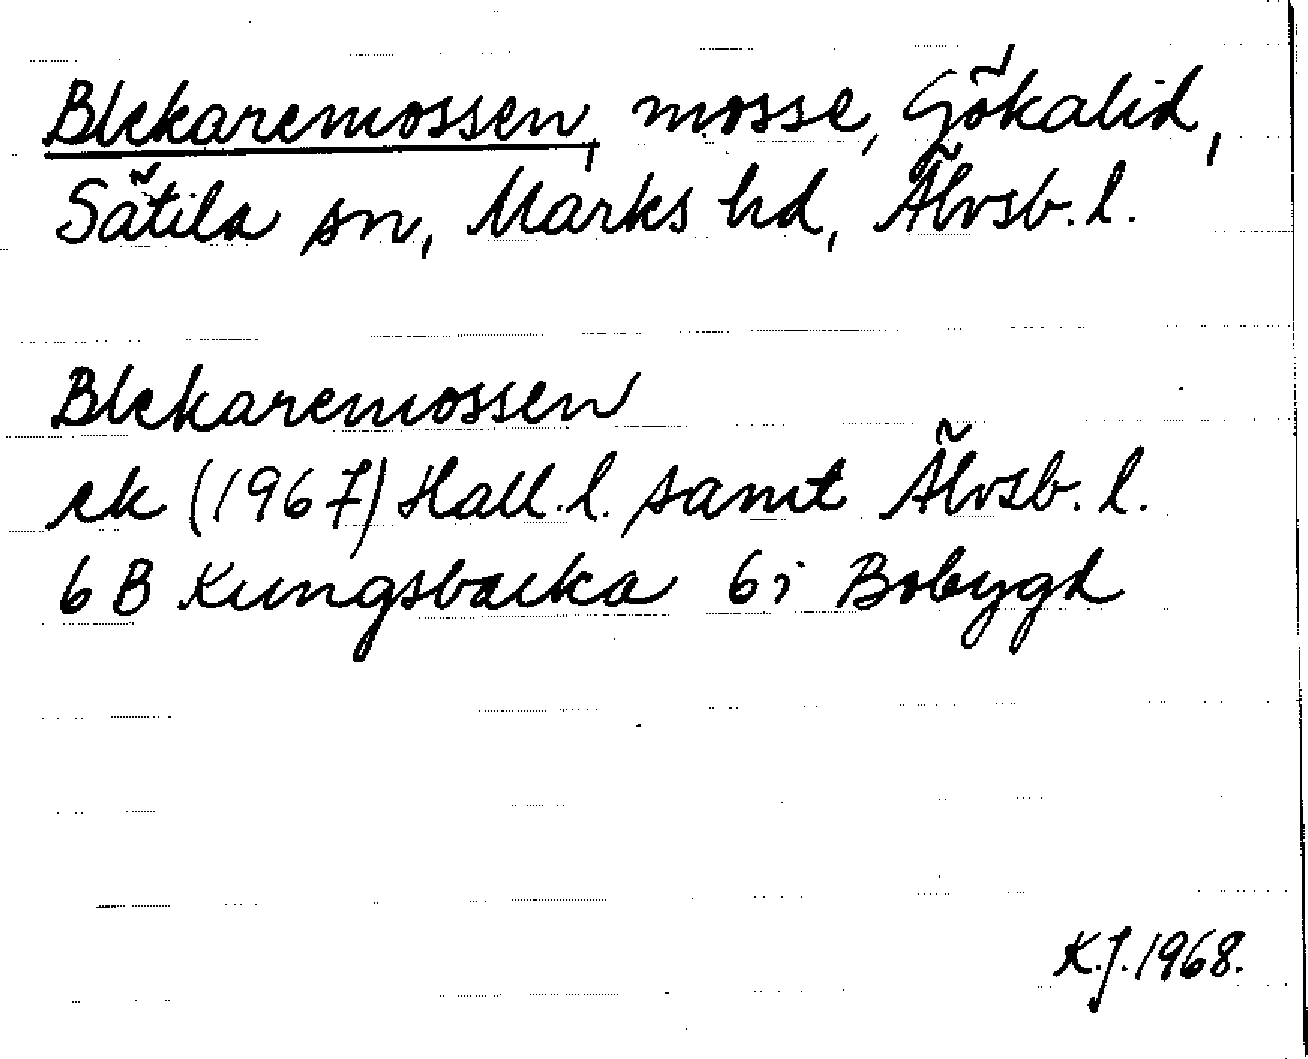 Blekaremossen, mosse, Gökalid,
Sätila sn, Marks hd, Älvsb. l.
Blekaremossen
ek (1967) Hall. l. samt Älvsb. l.
6 B Kungsbacka 6i Bobygd
K.J. 1968.